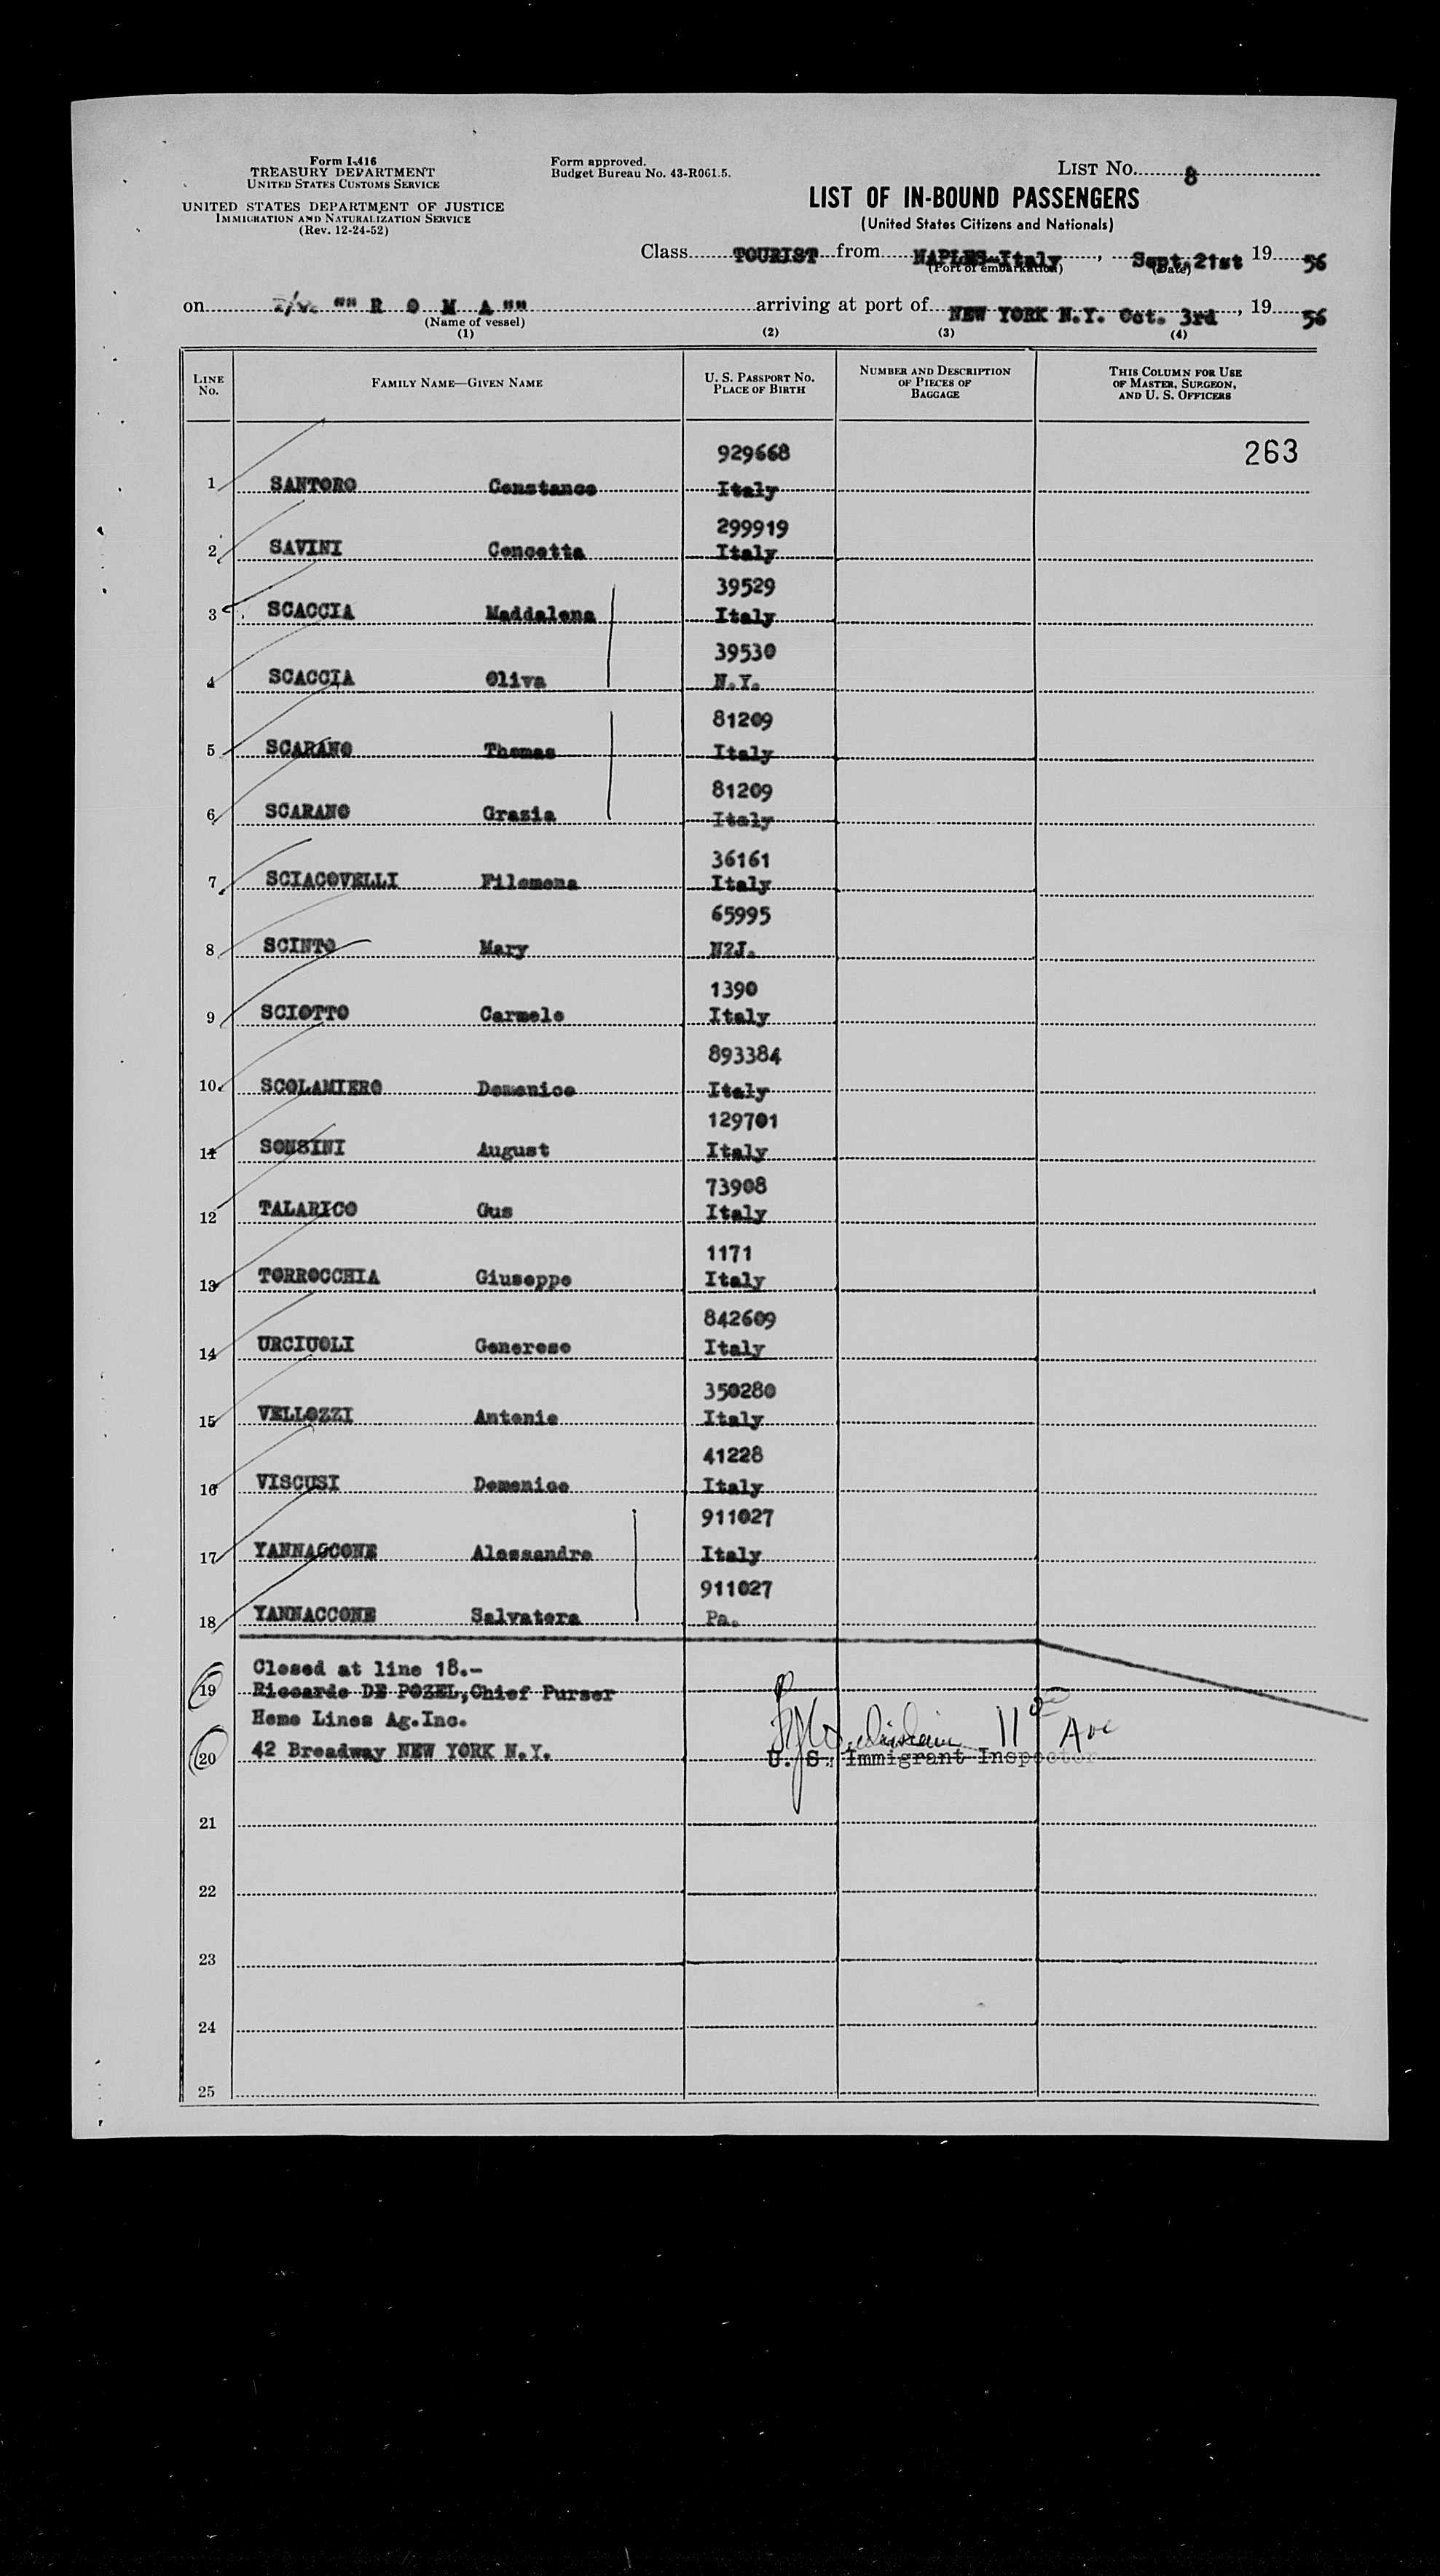 Form I-416
TREASURY DEPARTMENT
UNITED STATES CUSTOMS SERVICE
UNITED STATES DEPARTMENT OF JUSTICE
IMMIGRATION AND NATURALIZATION SERVICE
(Rev. 12-24-52)
Form approved.
Budget Bureau No. 43-R061.5.
LIST No. 8
LIST OF IN-BOUND PASSENGERS
(United States Citizens and Nationals)
Class TOURIST from NAPLES-Italy, Sept. 21st 19 56
(Port of embarkation) (Date)
on "" R O M A "" arriving at port of NEW YORK N.Y. Oct. 3rd, 19 56
(Name of vessel)
(1) (2) (3) (4)
LINE No. FAMILY NAME—GIVEN NAME U. S. PASSPORT No. PLACE OF BIRTH NUMBER AND DESCRIPTION OF PIECES OF BAGGAGE THIS COLUMN FOR USE OF MASTER, SURGEON, AND U. S. OFFICERS
929668 263
1 SANTORO Constance Italy
299919
2 SAVINI Concetta Italy
39529
3 SCACCIA Maddalena Italy
39530
4 SCACCIA Oliva N.Y.
81209
5 SCARANO Thomas Italy
81209
6 SCARANO Grazia Italy
36161
7 SCIACOVELLI Filomena Italy
65995
8 SCINTO Mary N2J.
1390
9 SCIOTTO Carmelo Italy
893384
10 SCOLAMIERO Domenico Italy
129701
11 SONSINI August Italy
73908
12 TALARICO Gus Italy
1171
13 TORROCCHIA Giuseppe Italy
842609
14 URCIUOLI Generoso Italy
350280
15 VELLOZZI Antonio Italy
41228
16 VISCUSI Domenico Italy
911027
17 YANNACCONE Alessandro Italy
911027
18 YANNACCONE Salvatora Pa.
Closed at line 18.-
19 Riccardo DE POZEL, Chief Purser
Home Lines Ag.Inc.
11th Ave
20 42 Broadway NEW YORK N.Y. U. S. Immigrant Inspector
21
22
23
24
25